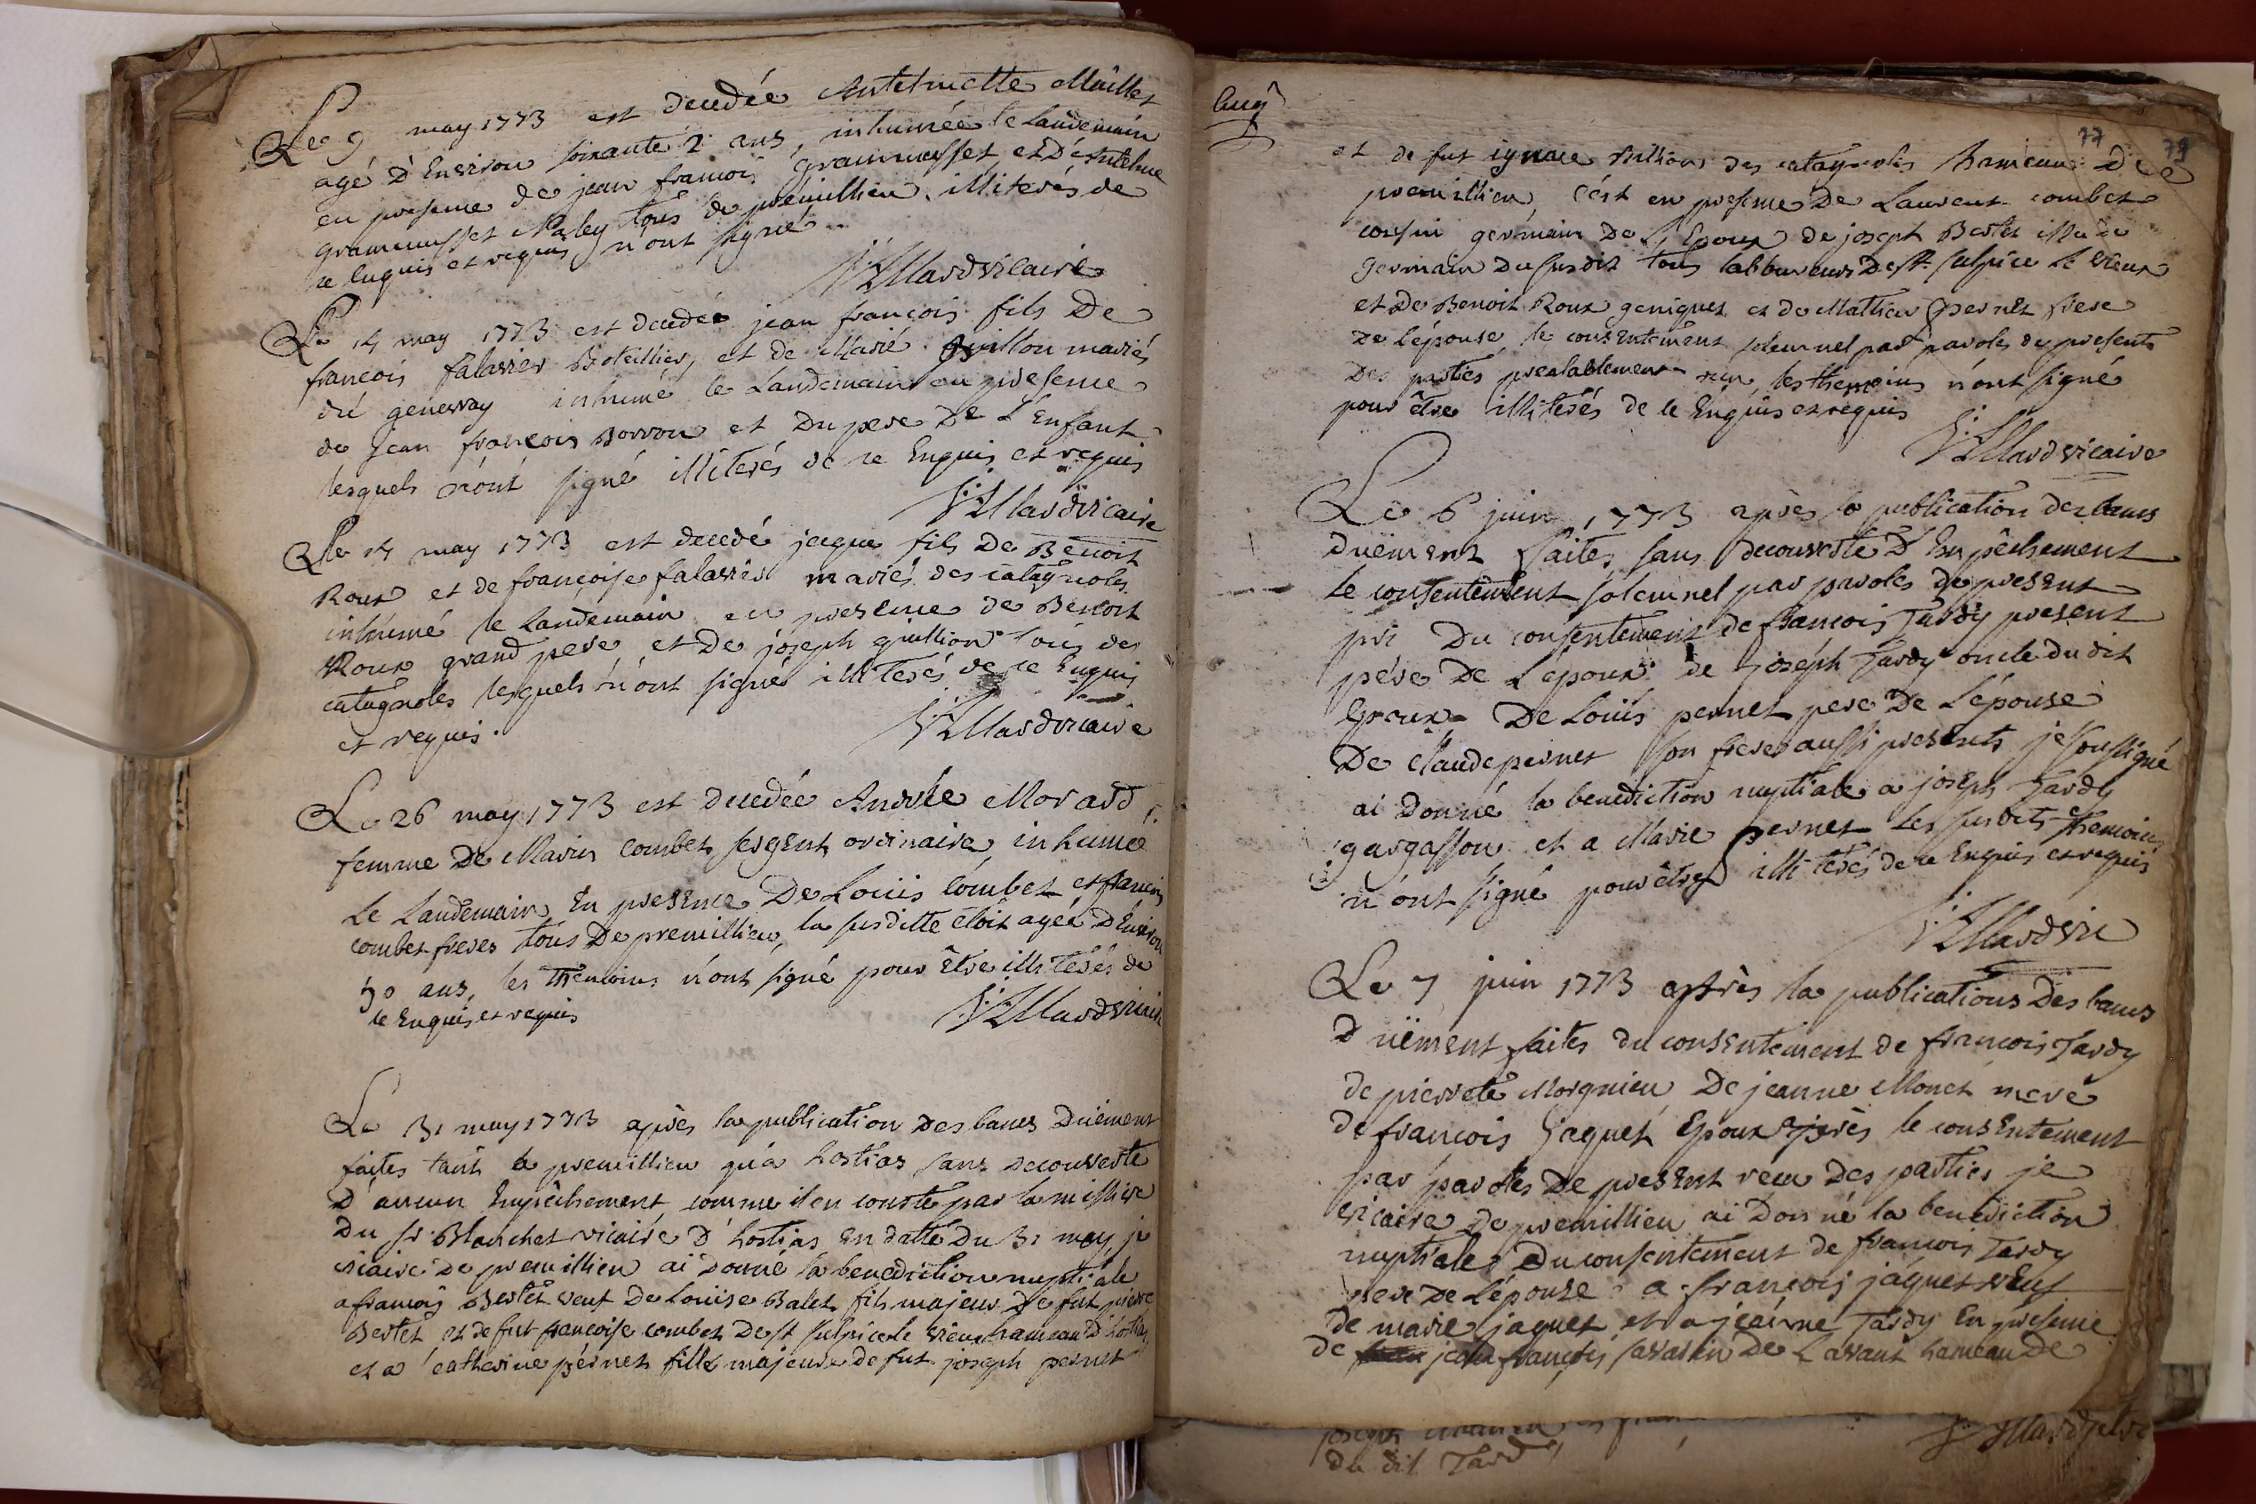 Le 9 may 1773 est decedée Antelmette Maillet
agé d'Environ soixante 2 ans, inhumée le landemain
en presence de jean francois grammusset et d'Antelme
grammusset Maley tous de premillieu illiterés de
ce Enquis et requis n'ont signé
Villiard vicaire
Le 14 may 1773 est decedé jean françois fils De
françois falavier Boteillier, et de Marie Guillon mariés
du genevray inhumé le Landemain en presence
de Jean françois Borron et Du pere De L'Enfant
lesquels n'ont signé illiterés de ce Enquis et requis
Villiard vicaire
Le 14 may 1773 est decedé jaque fils De Benoit
Roux et de françoise falavier mariés des catagnoles
inhumé le Landemain en presence de Benoit
Roux grand pere et De joseph guillion tous des
catagnoles lesquels n'ont signé illiterés de ce Enquis
et requis.
Villiard vicaire
Le 26 may 1773 est decedée Andrée Morard
femme De Marin Combet sergent ordinaire inhumée
Le Landemain En presence De Louis Combet et francois
combet freres tous De premillieu, la susditte etoit agée D'Environ
50 ans, les themoins n'ont signé pour Etre illiterés de
ce Enquis et requis
Villiard vicaire
Le 31 may 1773 après la publication Des bancs Duëment
faites tant a premillieu qu'a hostias sans decouverte
D'aucun Empêchement comme il en conste par la missive
Du sr Blanchet vicaire D'hostias En datte Du 31 may, je
vicaire De premillieu ai Donné la benediction nuptiale
a francois Bertet veuf De Louise Balet fils majeur De fut pierre
Bertet et de fut françoise combet De st sulpice le vieux hameau D'hostias
et a catherine pernet fille majeure de fut joseph pernet
77
79
et de fut ignace Millions des catagnoles hameau De
premillieu, c'est en presence De Laurent combet
cousin germain De L'Epoux de joseph Bertet issu de
germain Du susdit tous laboureurs De st sulpice Le vieux
et De Benoit Roux et de Mathieu pernet frere
De L'épouse, le consentement solemnel par paroles de presents
Des parties prealablement les themoins n'ont signé
pour être illiterés de ce Enquis et requis
Villiard vicaire
Le 6 juin 1773 après la publication des bancs
duëment faites sans decouverte D'Empêchement
le consentement solemnel par paroles de present
pri Du consentement de francois Tardy present
père De L'epoux de joseph Tardy oncle du dit
Epoux De Louis pernet pere De L'épouse
De Claude pernet son frere aussi presents je soussigné
ai Donné la benediction nuptiale a joseph Tardy
gargasson et a Marie pernet Les susdits themoins
n'ont signé pour être illiterés de ce Enquis et requis
Villiard vic
Le 7 juin 1773 après la publications Des bancs
Duëment faites du consentement de francois Tardy
de pierrete Morgnieu De jeanne Monet mere
De francois jaquet Epoux après le consentement
par paroles De present recu Des parties je
vicaire De premillieu ai Donné la benediction
nuptiale Du consentement de francois Tardy
pere De L'épouse a françois jaquet veuf
De marie jaquet et a jeanne Tardy En presence
de jean françois savarin De Lavant hameau De
du dit Tard